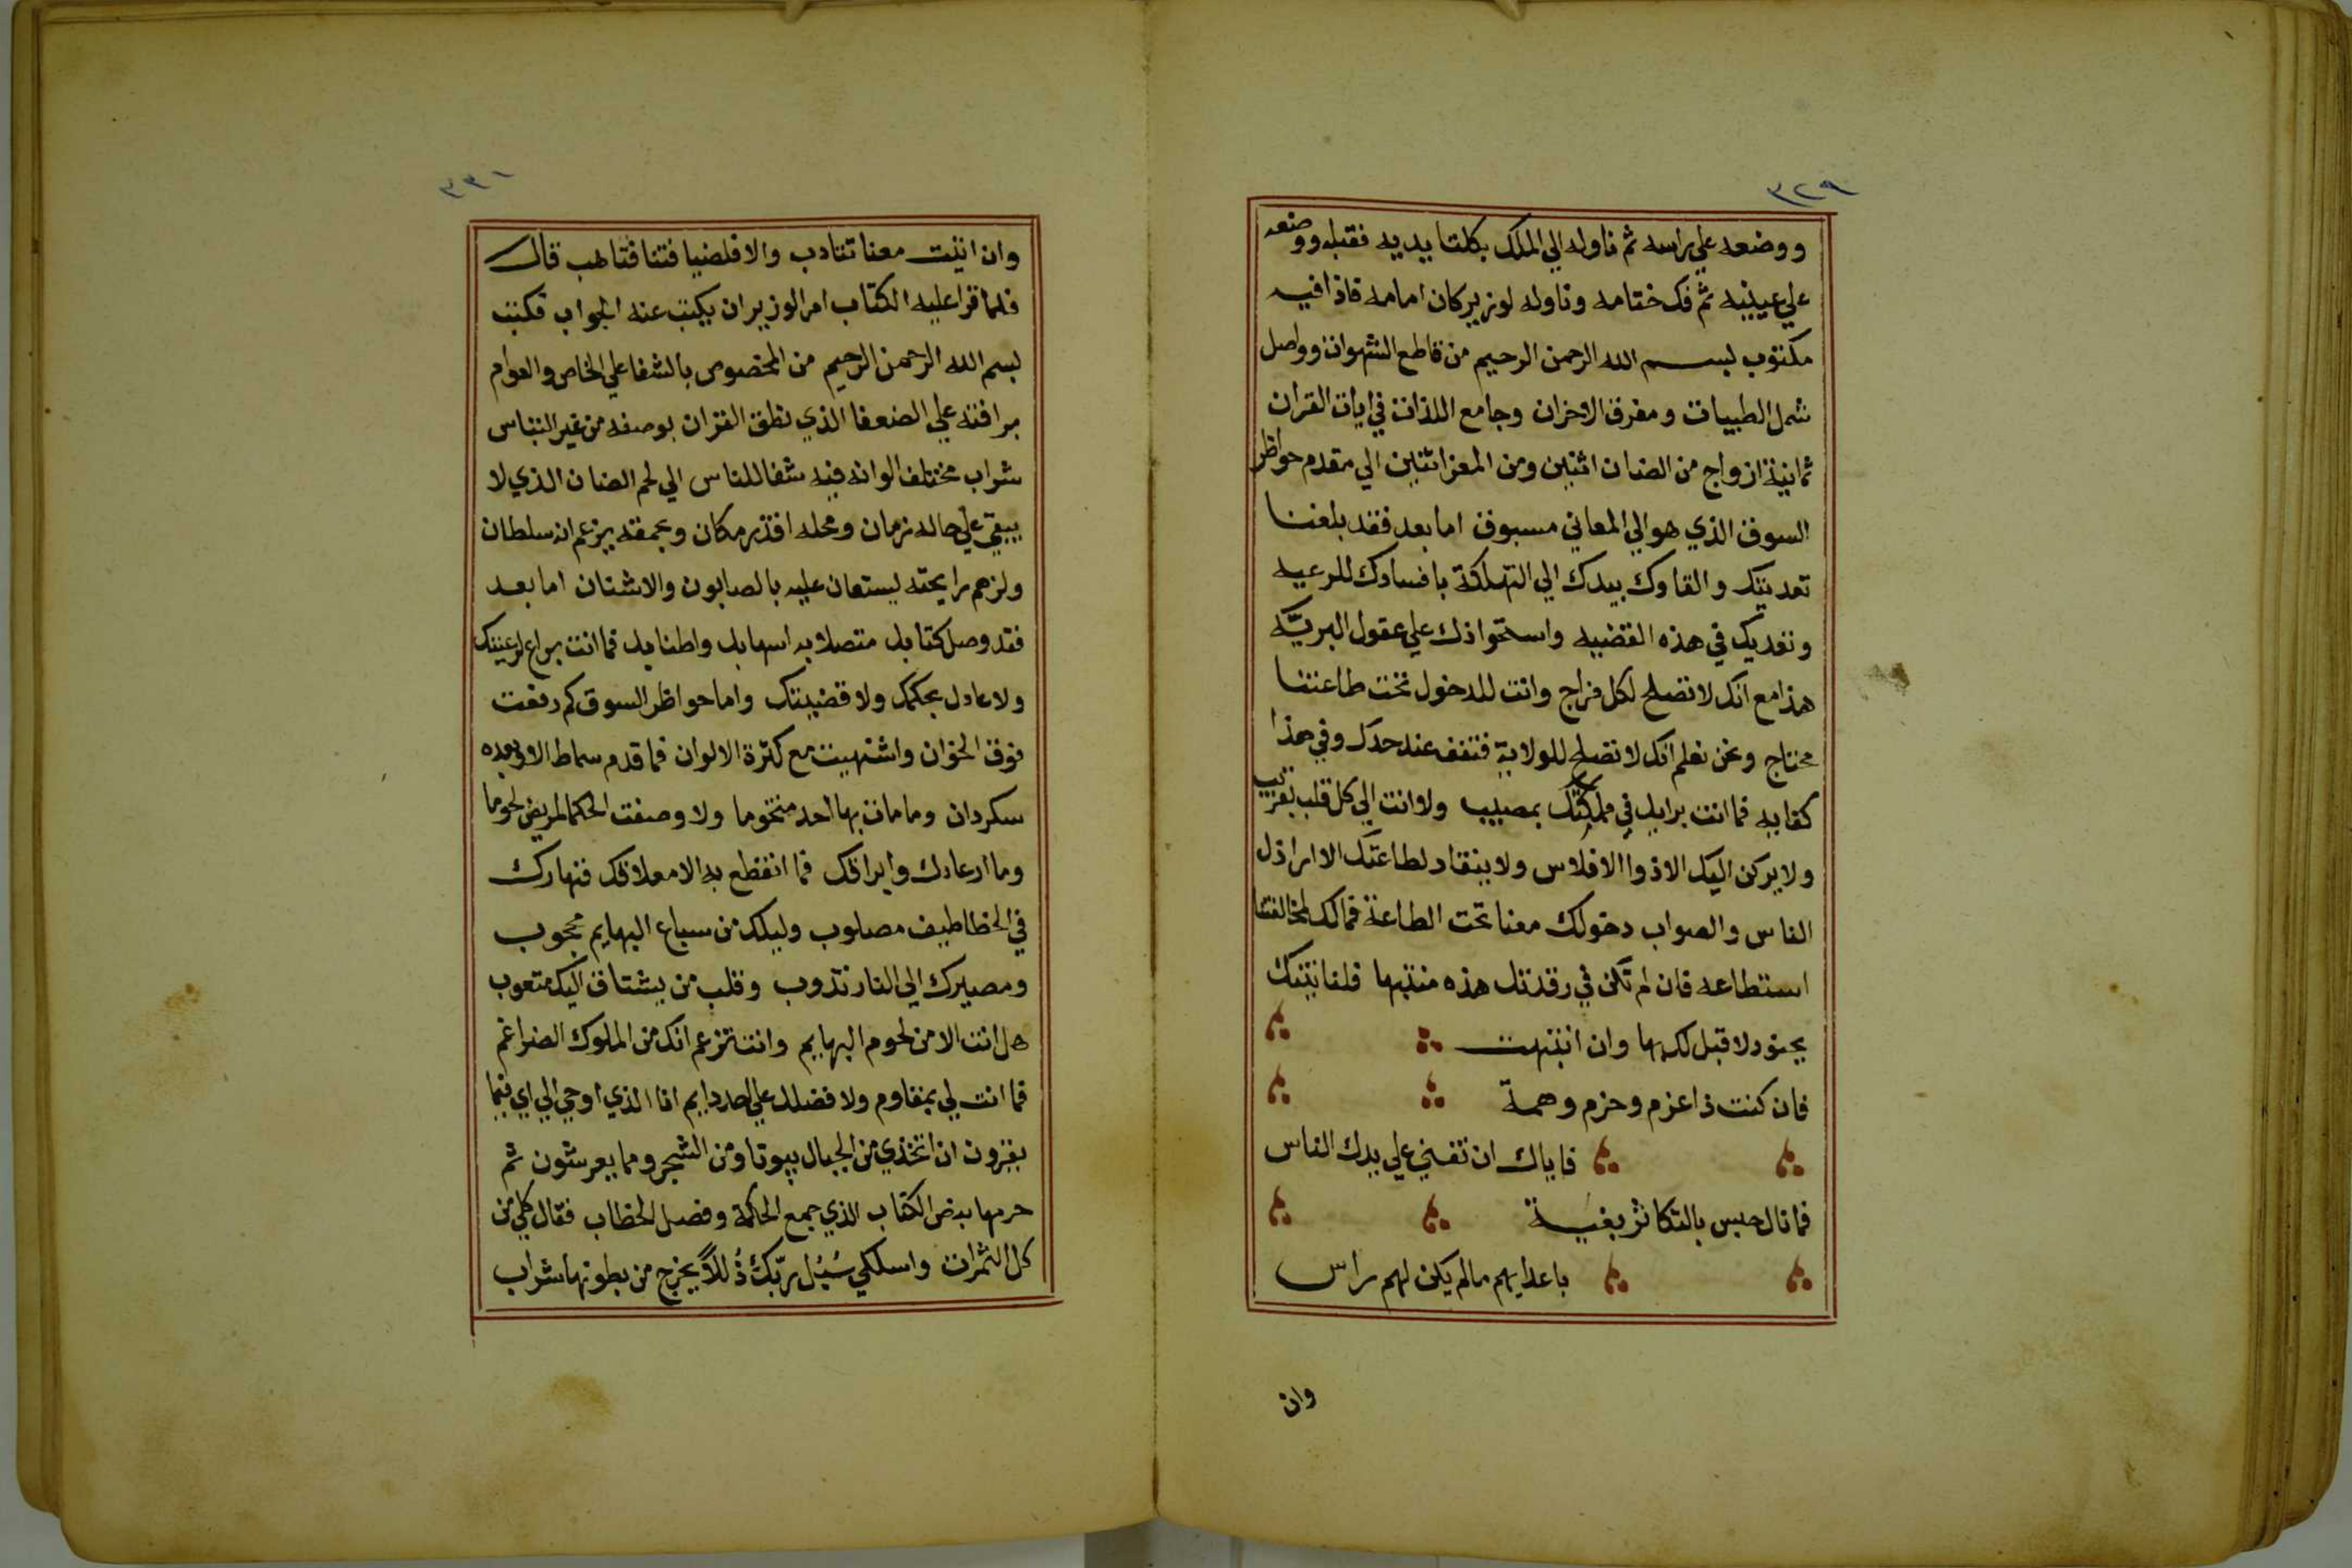 ٣٢٩
ووضعه علي راسه ثم ناوله الي الملك بكلتا يديه فقبله ووضعه
علي عينيه ثم فك ختامه وناوله لوزير كان امامه فاذا فيه
مكتوب بسم الله الرحمن الرحيم من قاطع الشهوات وواصل
شمل الطيبات ومفرق الاحزان وجامع اللذات في ايات القران
ثمانية ازواج من الضان اثنين ومن المعز اثنين الي مقدم حواظر
السوق الذي هو الي المعاني مسبوق اما بعد فقد بلغنا
تعديتك والقاوك بيدك الي التهلكة بافسادك للرعيه
وتعديك في هذه القضيه واستحواذك علي عقول البريَّه
هذا مع انك لا تصلح لكل مزاج وانت للدخول تحت طاعتنا
محتاج ونحن نعلم انك لا تصلح للولاية فتقف عند حدك وفي هذا
كفايه فما انت برايك في مملكتك بمصيب ولا انت الي كل قلب بقريب
ولا يركن اليك الا ذوا الافلاس ولا ينقاد لطاعتك الا اراذل
الناس والصواب دخولك معنا تحت الطاعة فمالك لمخالفتنا
استطاعه فان لم تكن في رقدتك هذه منتبها فلناتينك
بجنود لا قبل لك بها وان انتبهت
فان كنت ذا عزم وحزم وهمة
فاياك ان تفني علي يدك الناس
فما نال حبس بالتكاثر بغية
باعدايهم مالم يكن لهم راس
وان
٣٣١
وان اتيت معنا تتادب والا فلضيافتنا فتاهب قال
فلما قرا عليه الكتاب امر الوزير ان يكتب عنه الجواب فكتب
بسم الله الرحمن الرحيم من المخصوص بالشفا علي الخاص والعوام
برافته علي الضعفا الذي نطق القران بوصفه من غير التباس
شراب مختلف الوانه فيه شفا للناس الي لحم الضان الذي لا
يبقي علي حاله زمان ومحله اقذر مكان وبحمقه يزعم انه سلطان
ولزهم رايحته يستعان عليه بالصابون والاشنان اما بعد
فقد وصل كتابك متصلا به اسهابك واطنابك فما انت براع لرعيتك
ولا عادل بحكمك ولا قضيتك واما حواظر السوق كم رفعت
فوق الخوان واشتهيت مع كثرة الالوان فما قدم سماط الا وبعده
سكردان وما مات بها احد متخوما ولا وصفت الحكما لمريض لحوما
وما ارعادك وابراقك فما انقطع به الا معلاقك فنهارك
في الخطاطيف مصلوب وليلك من سباع البهايم محجوب
ومصيرك الي النار تذوب وقلب من يشتاق اليك متعوب
هل انت الا من لحوم البهايم وانت تزعم انك من الملوك الضراغم
فما انت لي بمقاوم ولا فضلك علي احد دايم انا الذي اوحي الي اي فيما
يقرون ان اتخذي من الجبال بيوتا ومن الشجر ومما يعرشون ثم
حرمها بنص الكتاب الذي جمع الحكمة وفصل الخطاب فقال كلي من
كل الثمرات واسلكي سُبُل ربّك ذُللاً يخرج من بطونها شراب